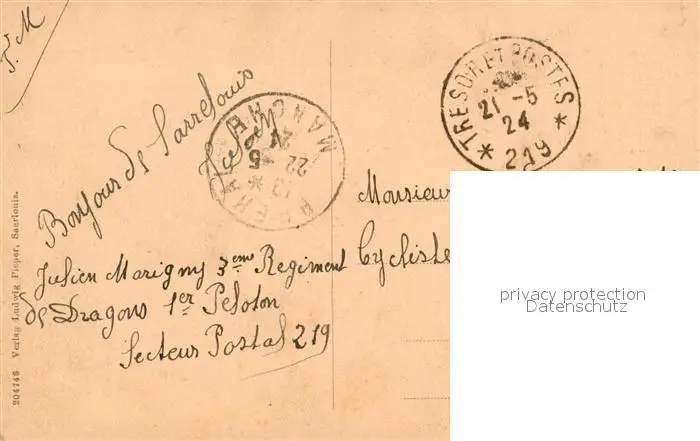 F. M
Bonjour de Sarrelouis
Julien
Julien Marigny 3eme Regiment
de Dragons 1er Peloton
Secteur Postal 219
204746 Verlag Ludwig Pieper, Saarlouis.
MANCHE
22
TRESOR ET POSTES
21 -5
24
* 219 *
Monsieur
Cycliste
privacy protection
Datenschutz